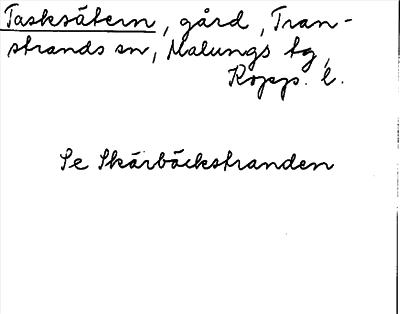 Tasksätern, gård, Tran-
strands sn, Malungs tg,
Kopp. l.
Se Skärbäckstranden